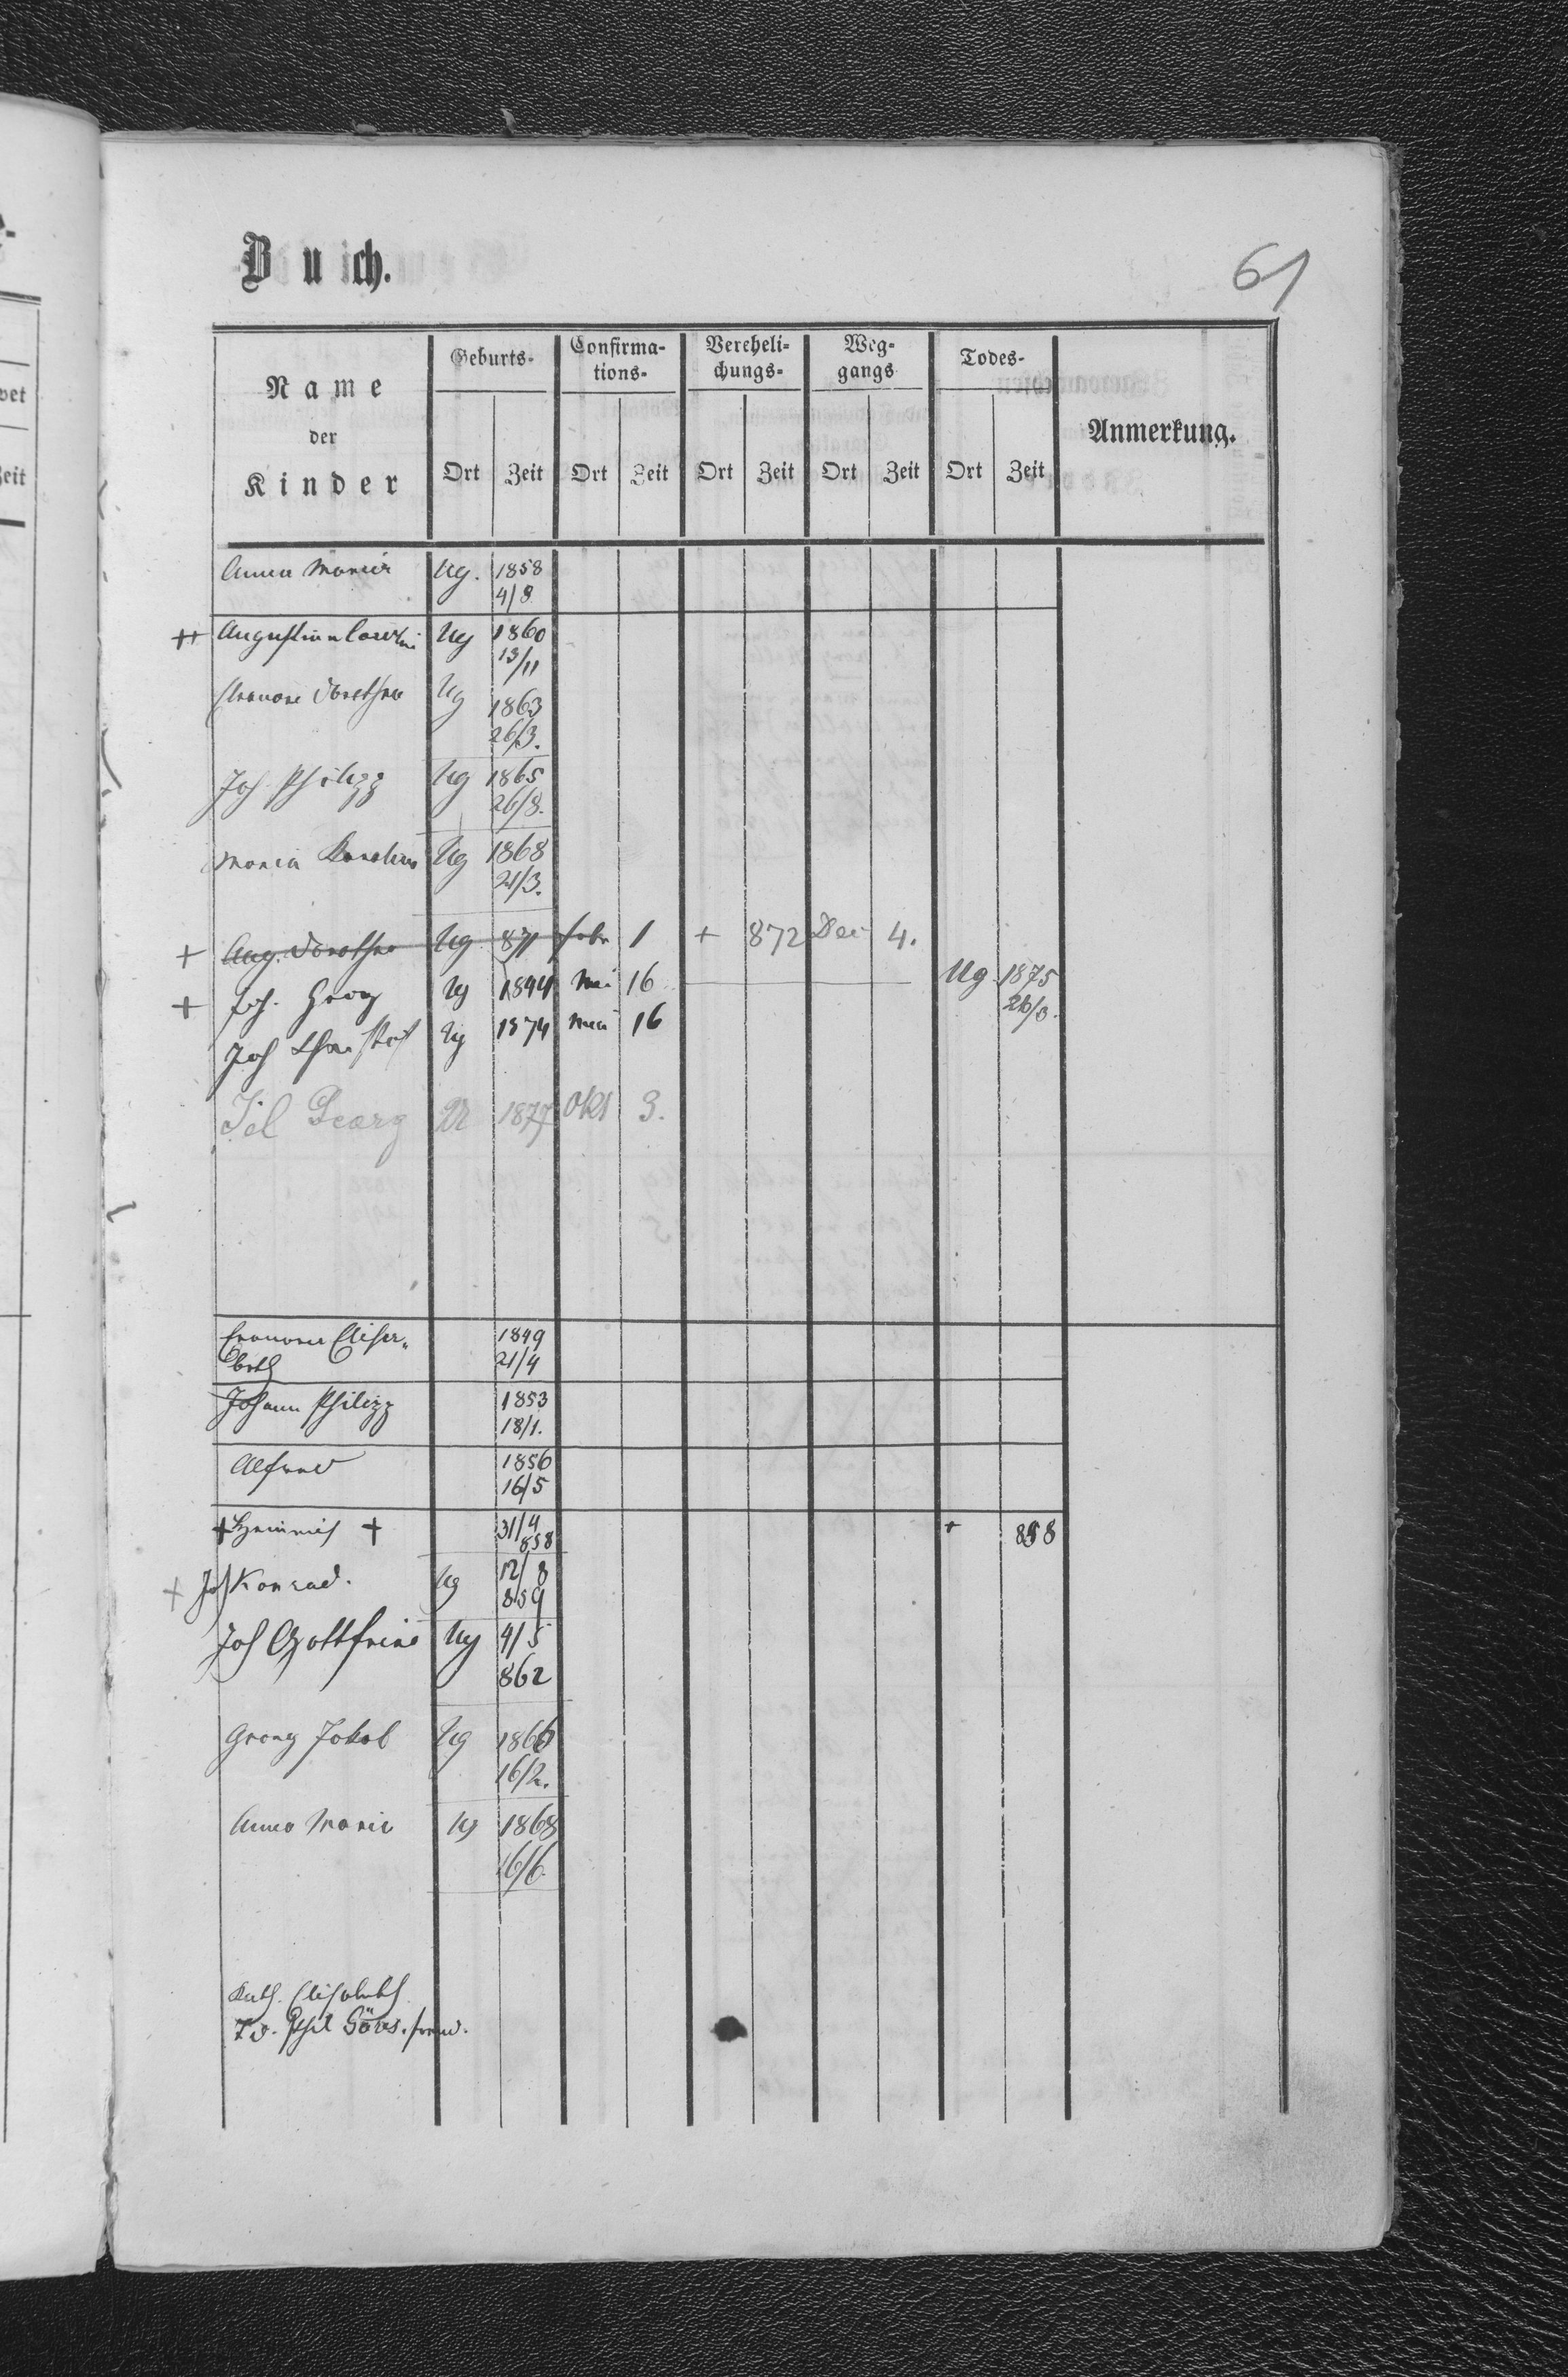 Buch.
61
Name der Kinder
Geburts-
Confirma-
tions-
Vereheli-
chungs-
Weg-
gangs
Todes-
Anmerkung.
Ort Zeit Ort Zeit Ort Zeit Ort Zeit Ort Zeit
Anna Maria Ug. 1858
4/8
++ Augustin Ug 1860
13/11
Eleonore Dorothea Ug 1863
26/3.
Joh. Philipp Ug 1865
26/8.
Maria Karolina Ug 1868
21/3.
+ Aug. Dorothea Ug 871 febr 1 + 872 Dec 4.
+ Joh. Georg Ug 1844 Mai 16 Ug 1875
26/3.
Joh Christof Ug 1874 Mai 16
Georg 1877 Okt 3.
Eleonore Elisa-
beth
1849
21/4
Johann Philipp 1853
18/1.
Alfred 1856
16/5
+ Heinrich + 31/4
858
+ 858
+ Joh Konrad. Ug 12/8
859
Joh Gottfried Ug 4/5
862
Georg Jakob Ug 1866
16/2.
Anna Maria Ug 1868
16/6.
Kath. Elisabeth
Phil
vet
Zeit